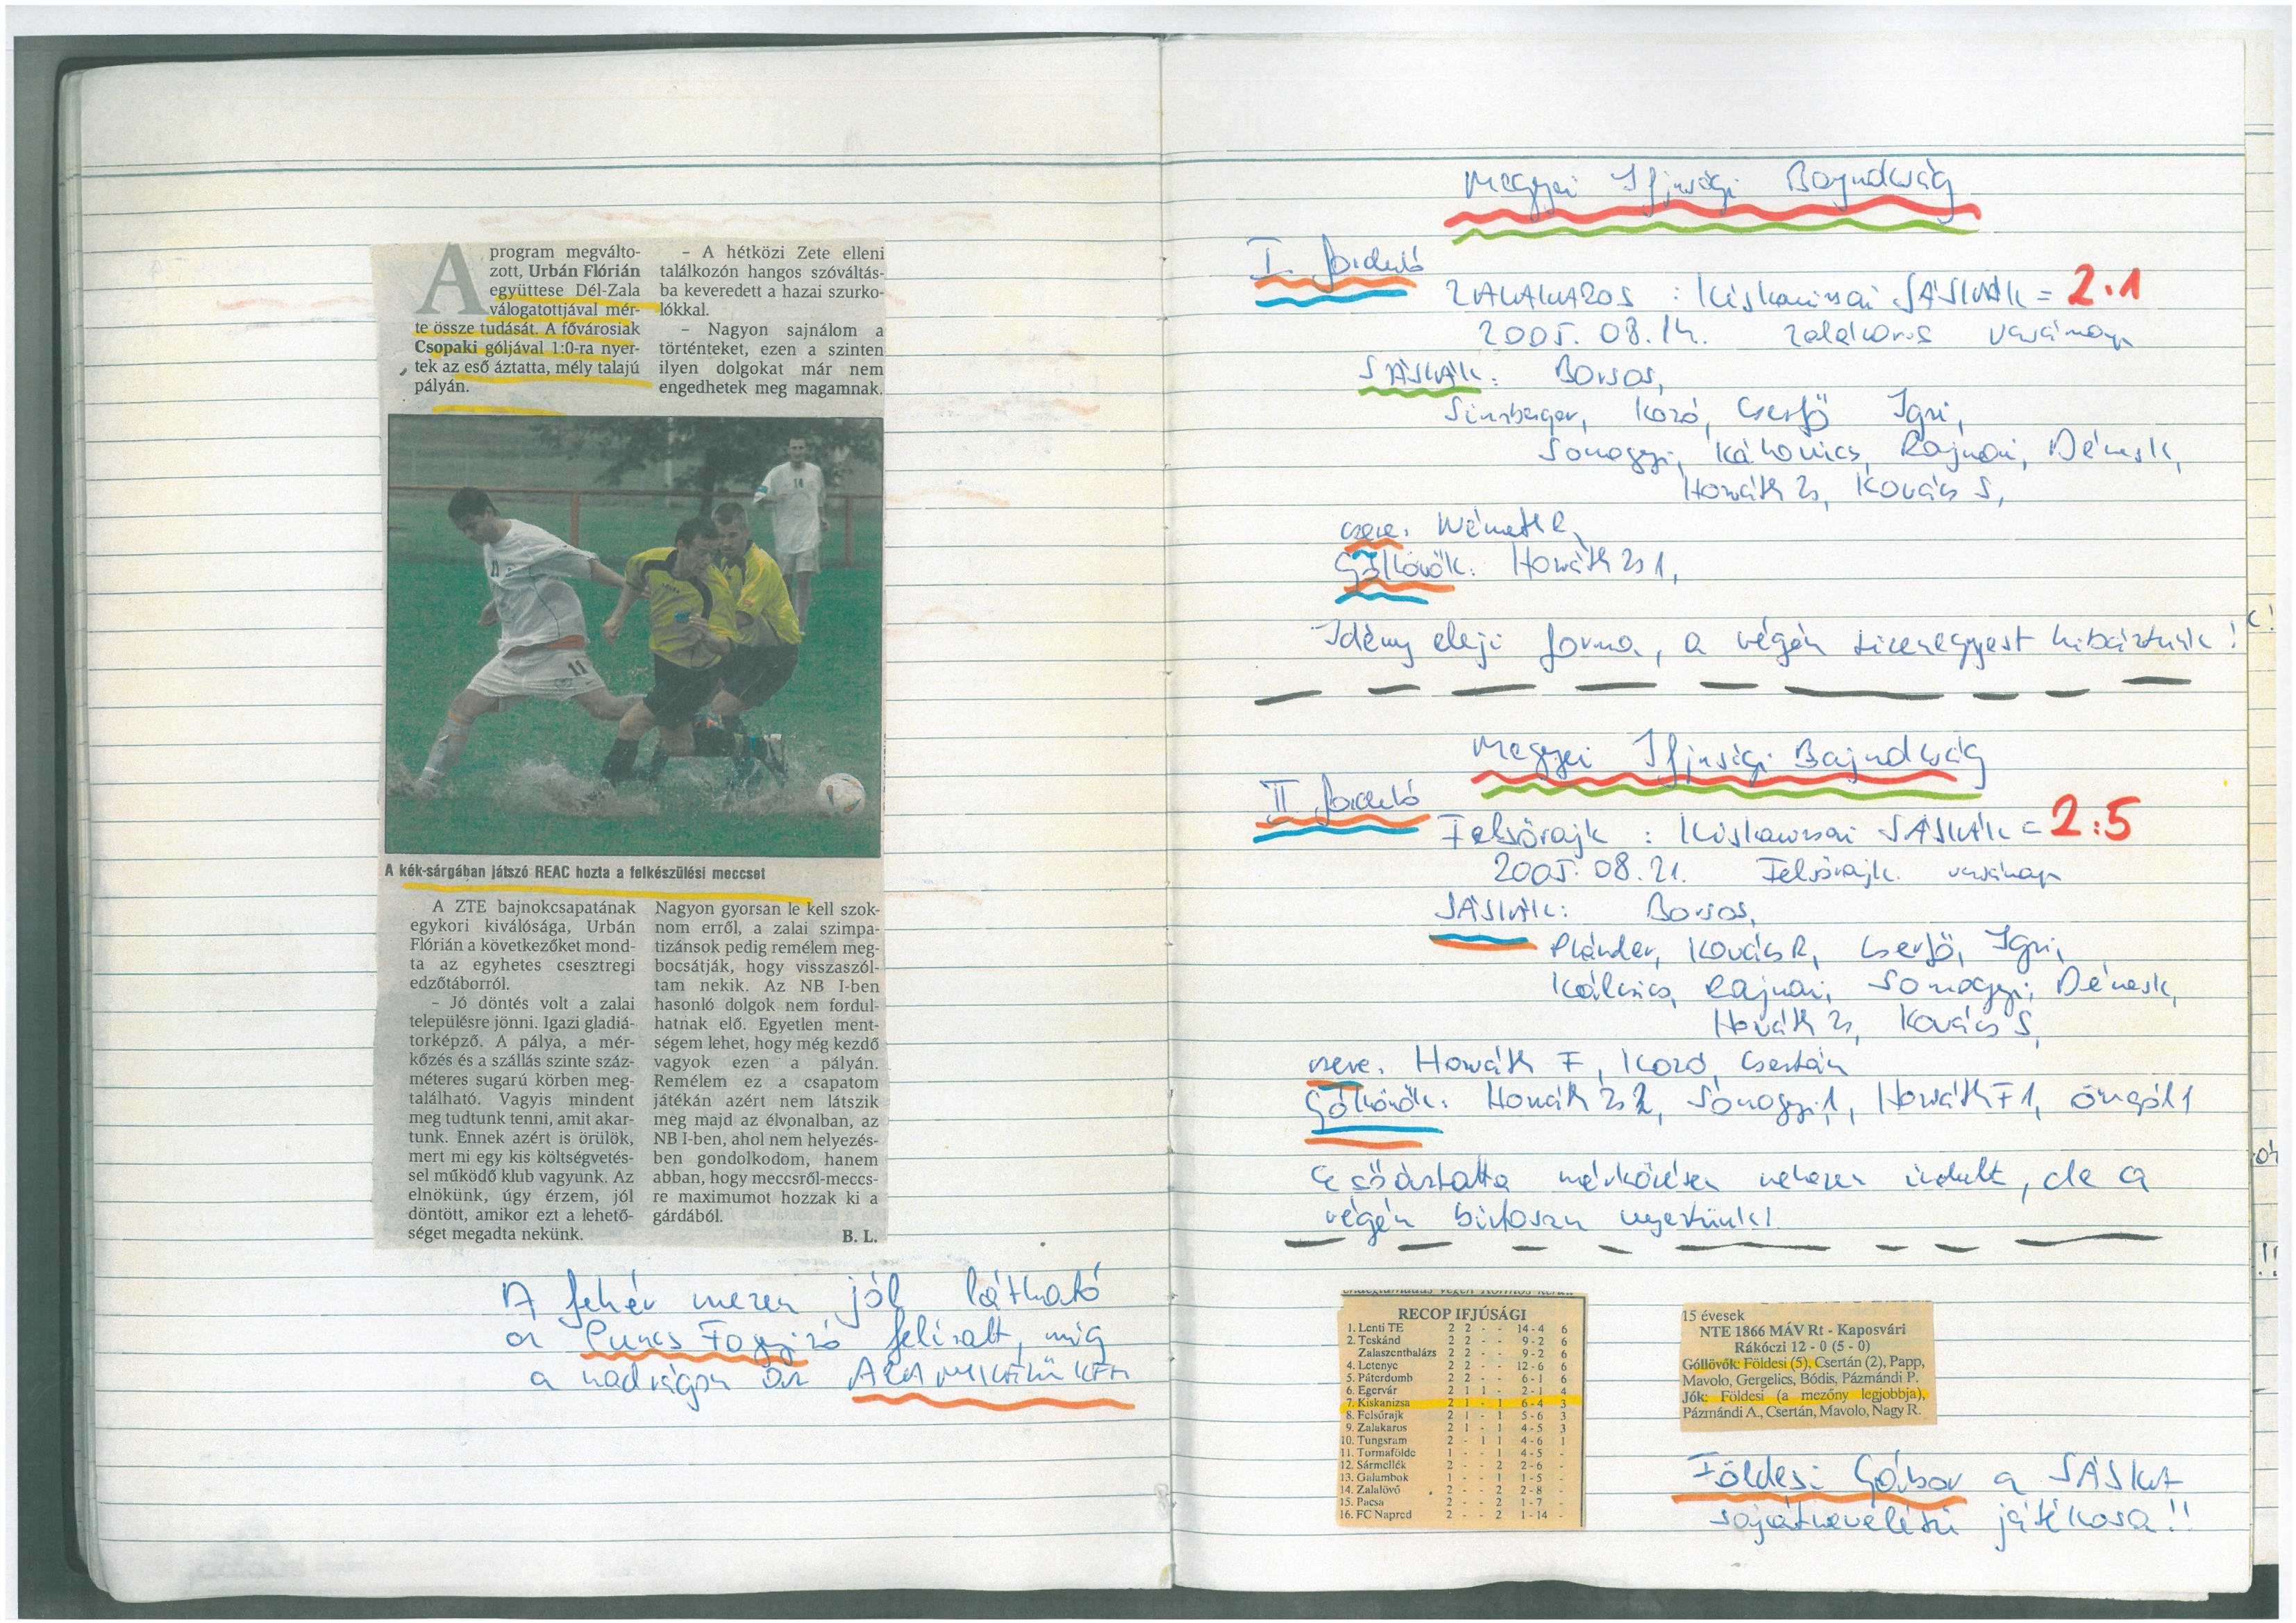 A program megválto-
zott, Urbán Flórián
együttese Dél-Zala
válogatottjával mér-
te össze tudását. A fővárosiak
Csopaki góljával 1:0-ra nyer-
tek az eső áztatta, mély talajú
pályán.
– A hétközi Zete elleni
találkozón hangos szóváltás-
ba keveredett a hazai szurko-
lókkal.
– Nagyon sajnálom a
történteket, ezen a szinten
ilyen dolgokat már nem
engedhetek meg magamnak.
14
11
A kék-sárgában játszó REAC hozta a felkészülési meccset
A ZTE bajnokcsapatának
egykori kiválósága, Urbán
Flórián a következőket mond-
ta az egyhetes csesztregi
edzőtáborról.
– Jó döntés volt a zalai
településre jönni. Igazi gladiá-
torképző. A pálya, a mér-
kőzés és a szállás szinte száz-
méteres sugarú körben meg-
található. Vagyis mindent
meg tudtunk tenni, amit akar-
tunk. Ennek azért is örülök,
mert mi egy kis költségvetés-
sel működő klub vagyunk. Az
elnökünk, úgy érzem, jól
döntött, amikor ezt a lehető-
séget megadta nekünk.
Nagyon gyorsan le kell szok-
nom erről, a zalai szimpa-
tizánsok pedig remélem meg-
bocsátják, hogy visszaszól-
tam nekik. Az NB I-ben
hasonló dolgok nem fordul-
hatnak elő. Egyetlen ment-
ségem lehet, hogy még kezdő
vagyok ezen a pályán.
Remélem ez a csapatom
játékán azért nem látszik
meg majd az élvonalban, az
NB I-ben, ahol nem helyezés-
ben gondolkodom, hanem
abban, hogy meccsről-meccs-
re maximumot hozzak ki a
gárdából.
B. L.
A fehér mezen jól látható
a Puncs Fagyizó felirat, míg
a nadrágon az
Megyei Ifjusági Bajnokság
I. forduló
ZALAKAROS : Kiskanizsai SÁSKÁK = 2:1
2005. 08. 14. Zalakaros vasárnap
SÁSKÁK: Borsos,
Sinsberger, Kozó, Cserfő Igri,
Somogyi, Kálovics, Rajnai, Dénesk,
Horváth Zs, Kovács S,
csere: Németh R,
Góllövők: Horváth Zs 1,
Idény eleji forma, a végén tizenegyest hibáztunk!
Megyei Ifjusági Bajnokság
II forduló
Felsőrajk : Kiskanizsai SÁSKÁK = 2:5
2005. 08. 21. Felsőrajk vasárnap
SÁSKÁK: Borsos,
Plánder, Kovács R, Cserfő, Igri,
Kálovics, Rajnai, Somogyi, Dénesk,
Horváth Zs, Kovács S,
csere: Horváth F, Kozó, Csertán
Góllövők: Horváth Zs 2, Somogyi 1, Horváth F 1, öngól 1
Esőáztatta mérkőzésen nehezen indult, de a
végén biztosan nyertünk!
RECOP IFJÚSÁGI
1. Lenti TE 2 2 - - 14-4 6
2. Teskánd 2 2 - - 9-2 6
Zalaszenthalázs 2 2 - - 9-2 6
4. Letenye 2 2 - - 12-6 6
5. Páterdomb 2 2 - - 6-1 6
6. Egervár 2 1 1 - 2-1 4
7. Kiskanizsa 2 1 - 1 6-4 3
8. Felsőrajk 2 1 - 1 5-6 3
9. Zalakaros 2 1 - 1 4-5 3
10. Tungsram 2 - 1 1 4-6 1
11. Tormafölde 1 - - 1 4-5 -
12. Sármellék 2 - - 2 2-6 -
13. Galambok 1 - - 1 1-5 -
14. Zalalövő 2 - - 2 2-8 -
15. Pacsa 2 - - 2 1-7 -
16. FC Napred 2 - - 2 1-14 -
15 évesek
NTE 1866 MÁV Rt - Kaposvári
Rákóczi 12 - 0 (5 - 0)
Góllövők: Földesi (5), Csertán (2), Papp,
Mavolo, Gergelics, Bódis, Pázmándi P.
Jók: Földesi (a mezőny legjobbja),
Pázmándi A., Csertán, Mavolo, Nagy R.
Földesi Gábor a SÁSKA
sajátnevelésű játékosa!!